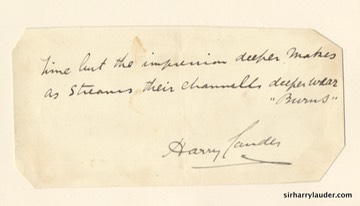 Time but the impression deeper makes
as streams their channells deeper wear
"Burns"
Harry Lauder
sirharrylauder.com